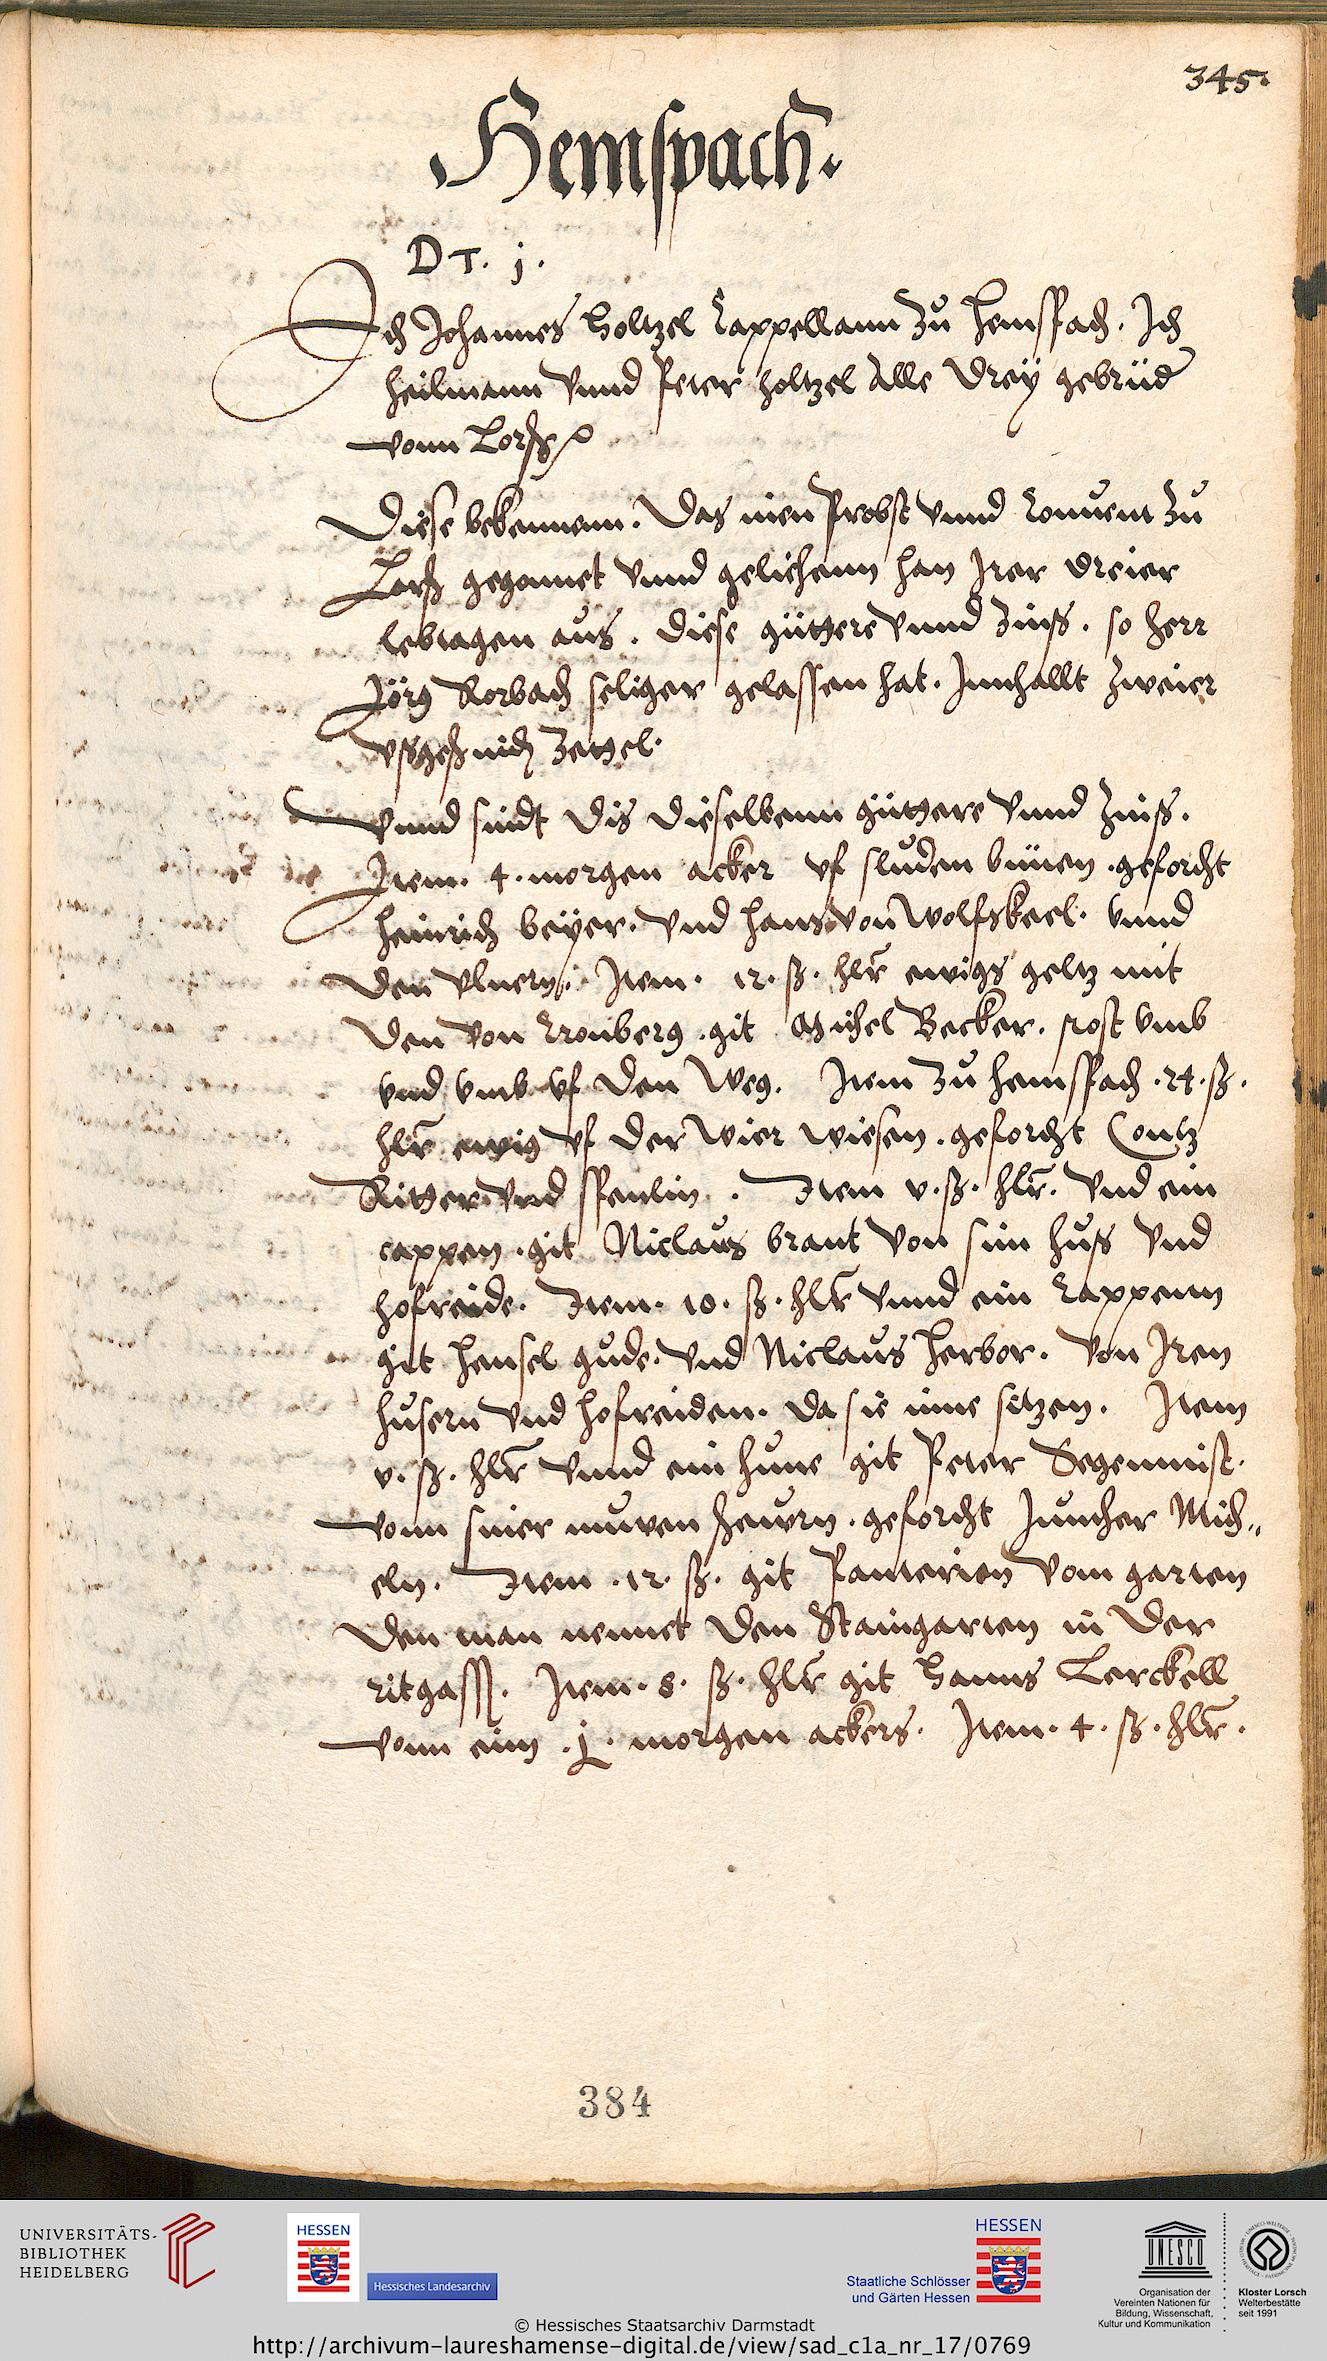 345.
Hemspach.
DT. j.
Ich Johannes Holtzel Cappellann zu Hemspach. Ich
Heilmann vnnd Peter Holtzel alle drey gebrüd
vonn Lorß
Diese bekennenn. Das inen Probst vnnd Conuent zu
Lorß gegonnet vnnd gelichenn han Irer dreier
lebtagen aus. diese güttere vnnd Zinß. so herr
Jörg Rorbach seliger gelassen hat. Innhallt Zweier
vßgeßnich Zettel.
Vnnd sindt dis dieselbenn güttere vnnd Zinß.
Item. 4. morgen acker vf sluden bünen. geforcht
Heinrich Beyer. vnd Hans von Wolfskeel. vnnd
den vlnern. Item. 12. ß. hlr ewigs geltz mit
den von Cronberg. git Michel Becker. stost vmb
vnd vmb vf den Weg. Item zu Hemspach. 24. ß.
hlr ewig vf der Wier wiesen. geforcht Contz
Ritter vnd spenlin. Item v. ß. hlr. vnd ein
cappen. git Niclaus brant von sim huß vnd
hofreide. Item. 10. ß. hlr vnnd ein Cappenn
git Hensel gude. vnd Niclaus Herbor. von Iren
husern vnd hofreiden. da sie inne sitzen. Item
v. ß. hlr vnnd ein hune git Peter Segenmist.
vonn siner nuwen sheurn. geforcht Juncher Mich„
eln. Item. 12. ß. git Panterion vom garten
den man nennet den Staingarten in der
ritgass. Item. 8. ß. hlr git Hanns Lerckell
vonn eim. j. morgen ackers. Item. 4. ß. hlr.
384
UNIVERSITÄTS-
BIBLIOTHEK
HEIDELBERG
HESSEN
Hessisches Landesarchiv
HESSEN
Staatliche Schlösser
und Gärten Hessen
UNESCO
Organisation der
Vereinten Nationen für
Bildung, Wissenschaft,
Kultur und Kommunikation
Kloster Lorsch
Welterbestätte
seit 1991
© Hessisches Staatsarchiv Darmstadt
http://archivum-laureshamense-digital.de/view/sad_c1a_nr_17/0769